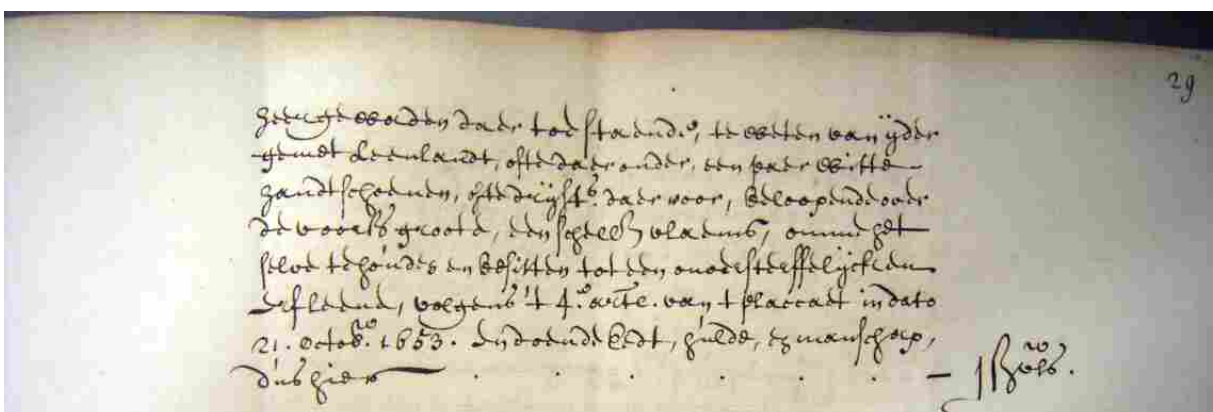 29
heergewaden daer toe staende, te weten van yder
gemet leenlandt, ofte daer onder, een paer witte
handtschoenen, ofte drij st. daer voor, beloopende over
de voors groote, een schell vlaems, omme het
selve te houden en besitten tot een onversterffelycken
erfleene, volgens 't 4e arte. van 't placcaet in dato
21. octobr. 1653. Endoende Eedt, hulde, en manschap,
dus hier . . . . . . —